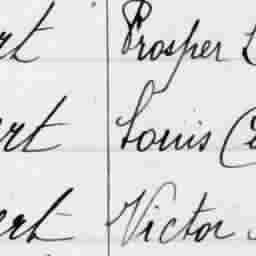 rt Prosper
ert Louis
ert Victor